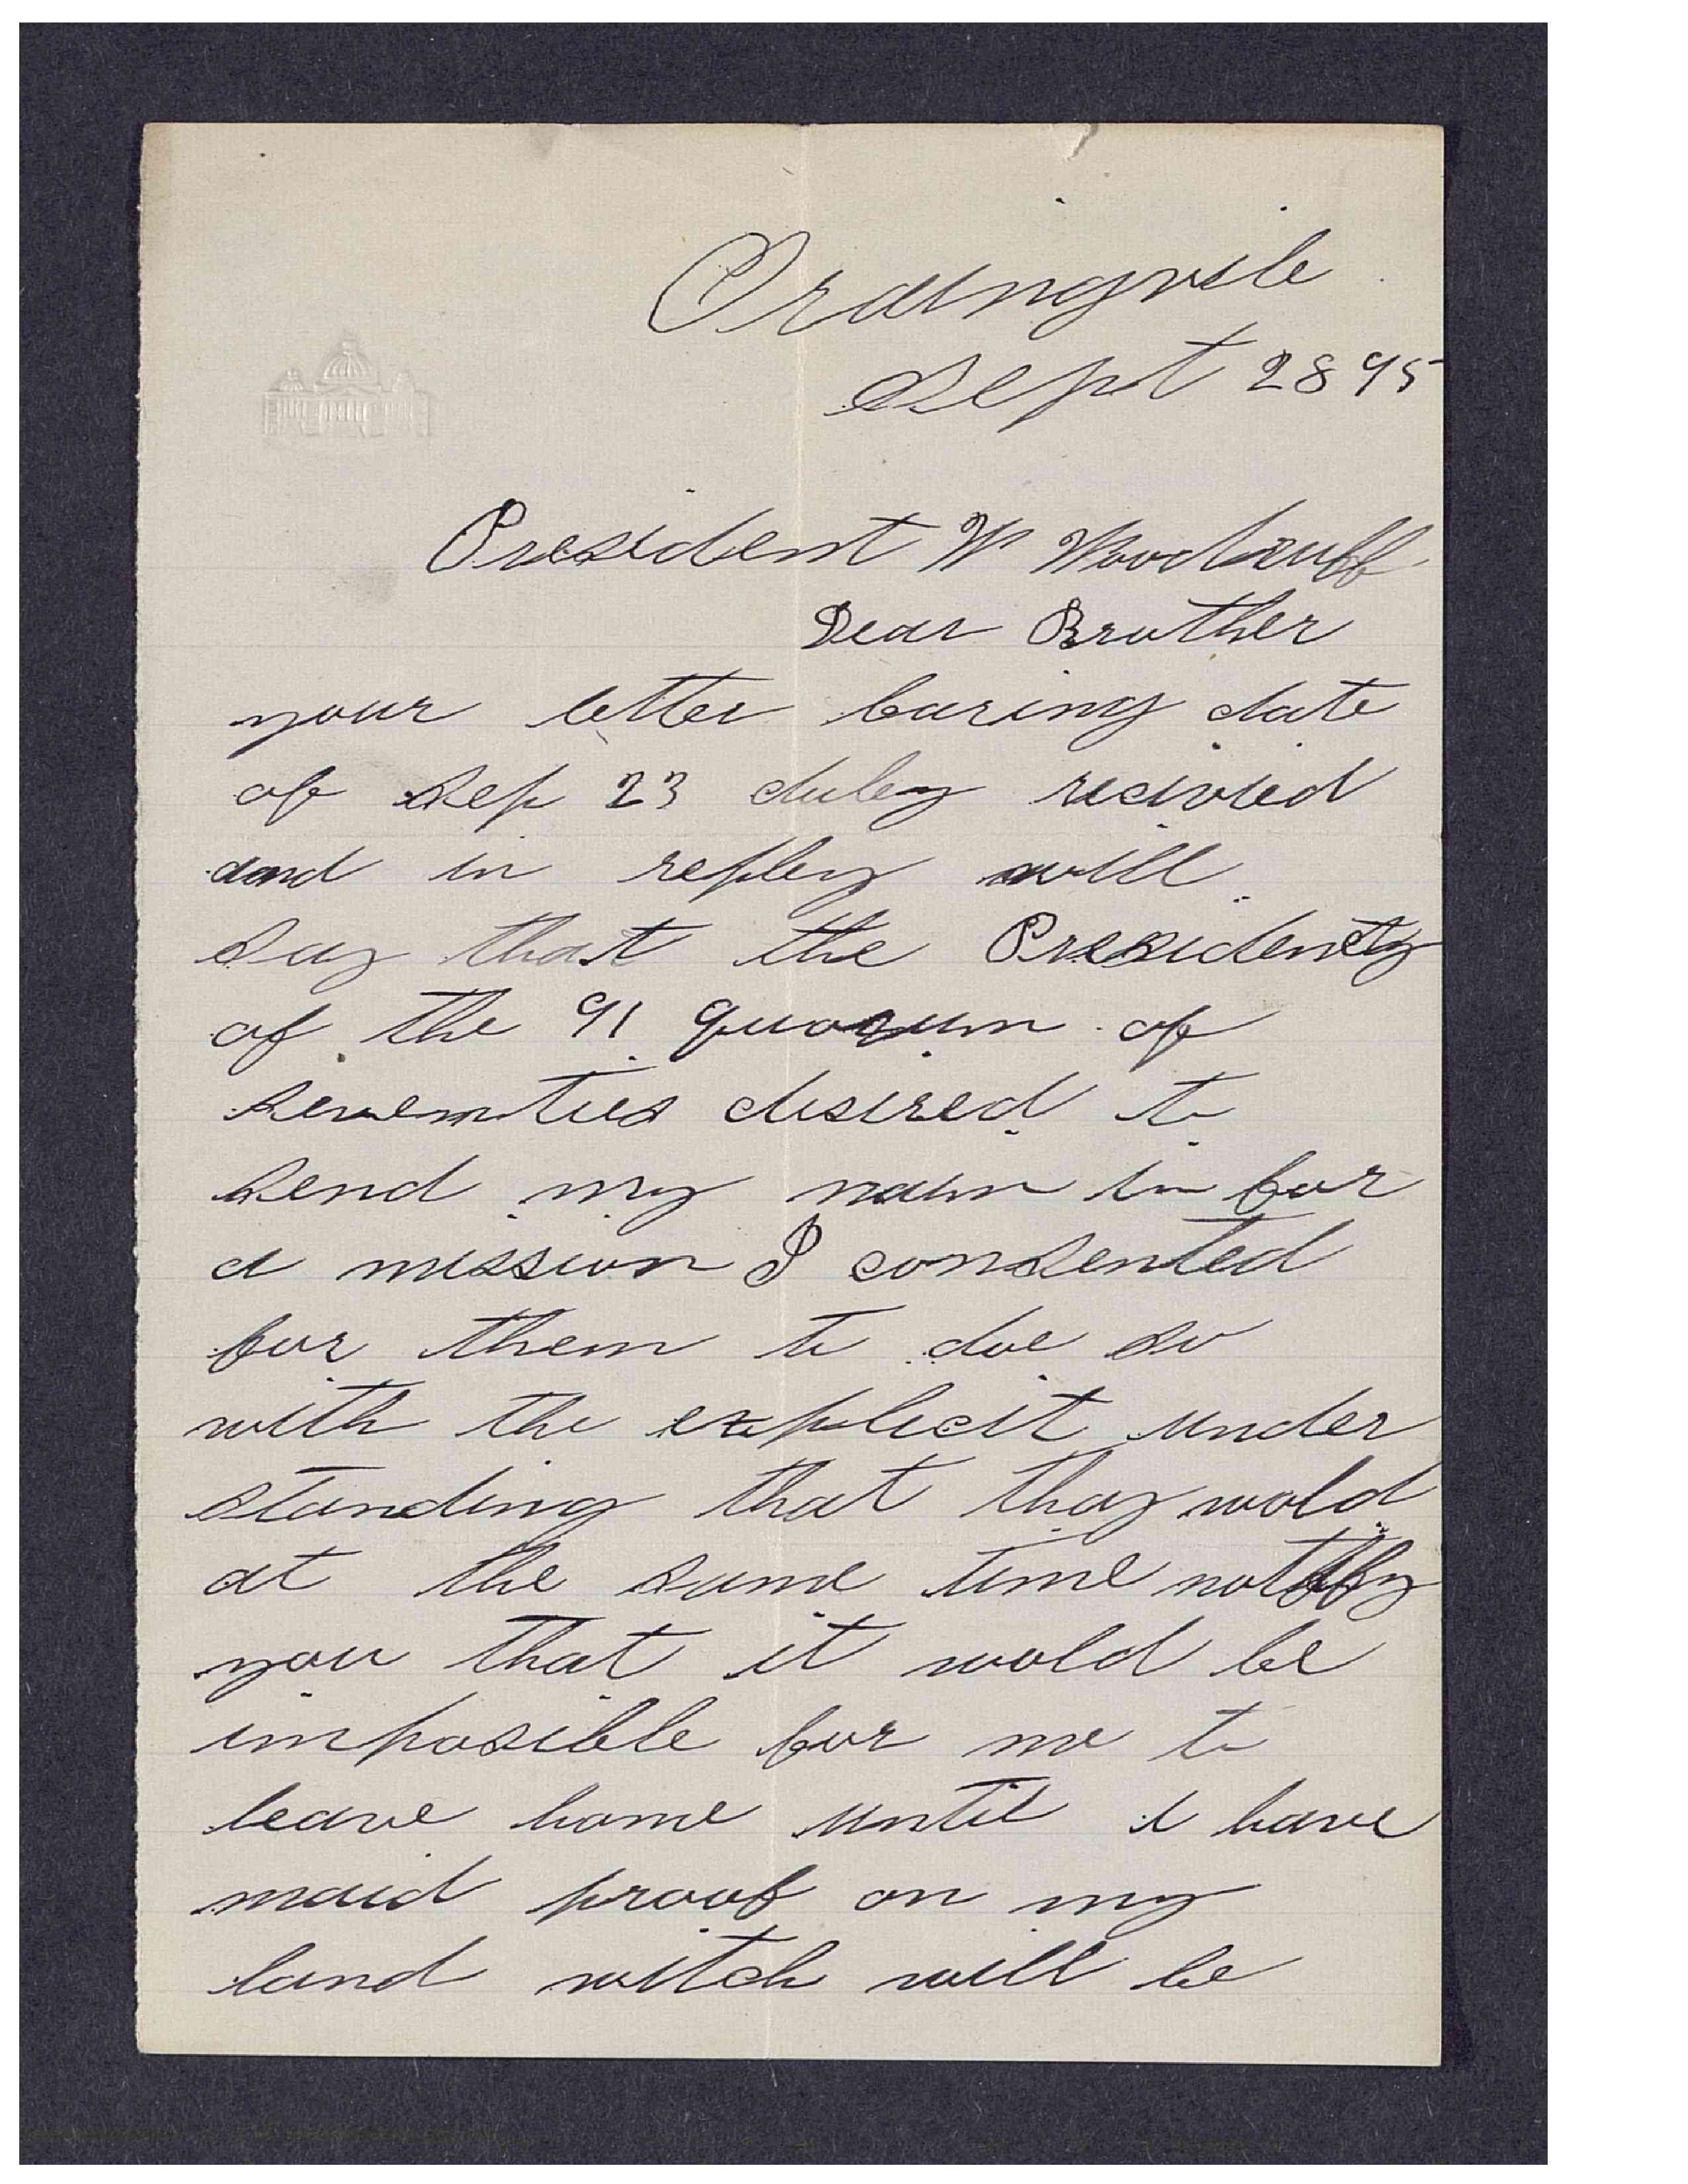 Oraingvile
Sept 28 95
President W Woodruff
Dear Brother
your letter baring date
of Sep 23 duley recivied
and in repley will
say that the Presidenty
of the 91 quorum of
seventies desired to
send my naim in for
a mission I consented
for them to doe so
with the explicit under
standing that thay wold
at the same time notify
you that it wold be
imposible for me to
leave home until I have
maid proof on my
land witch will be